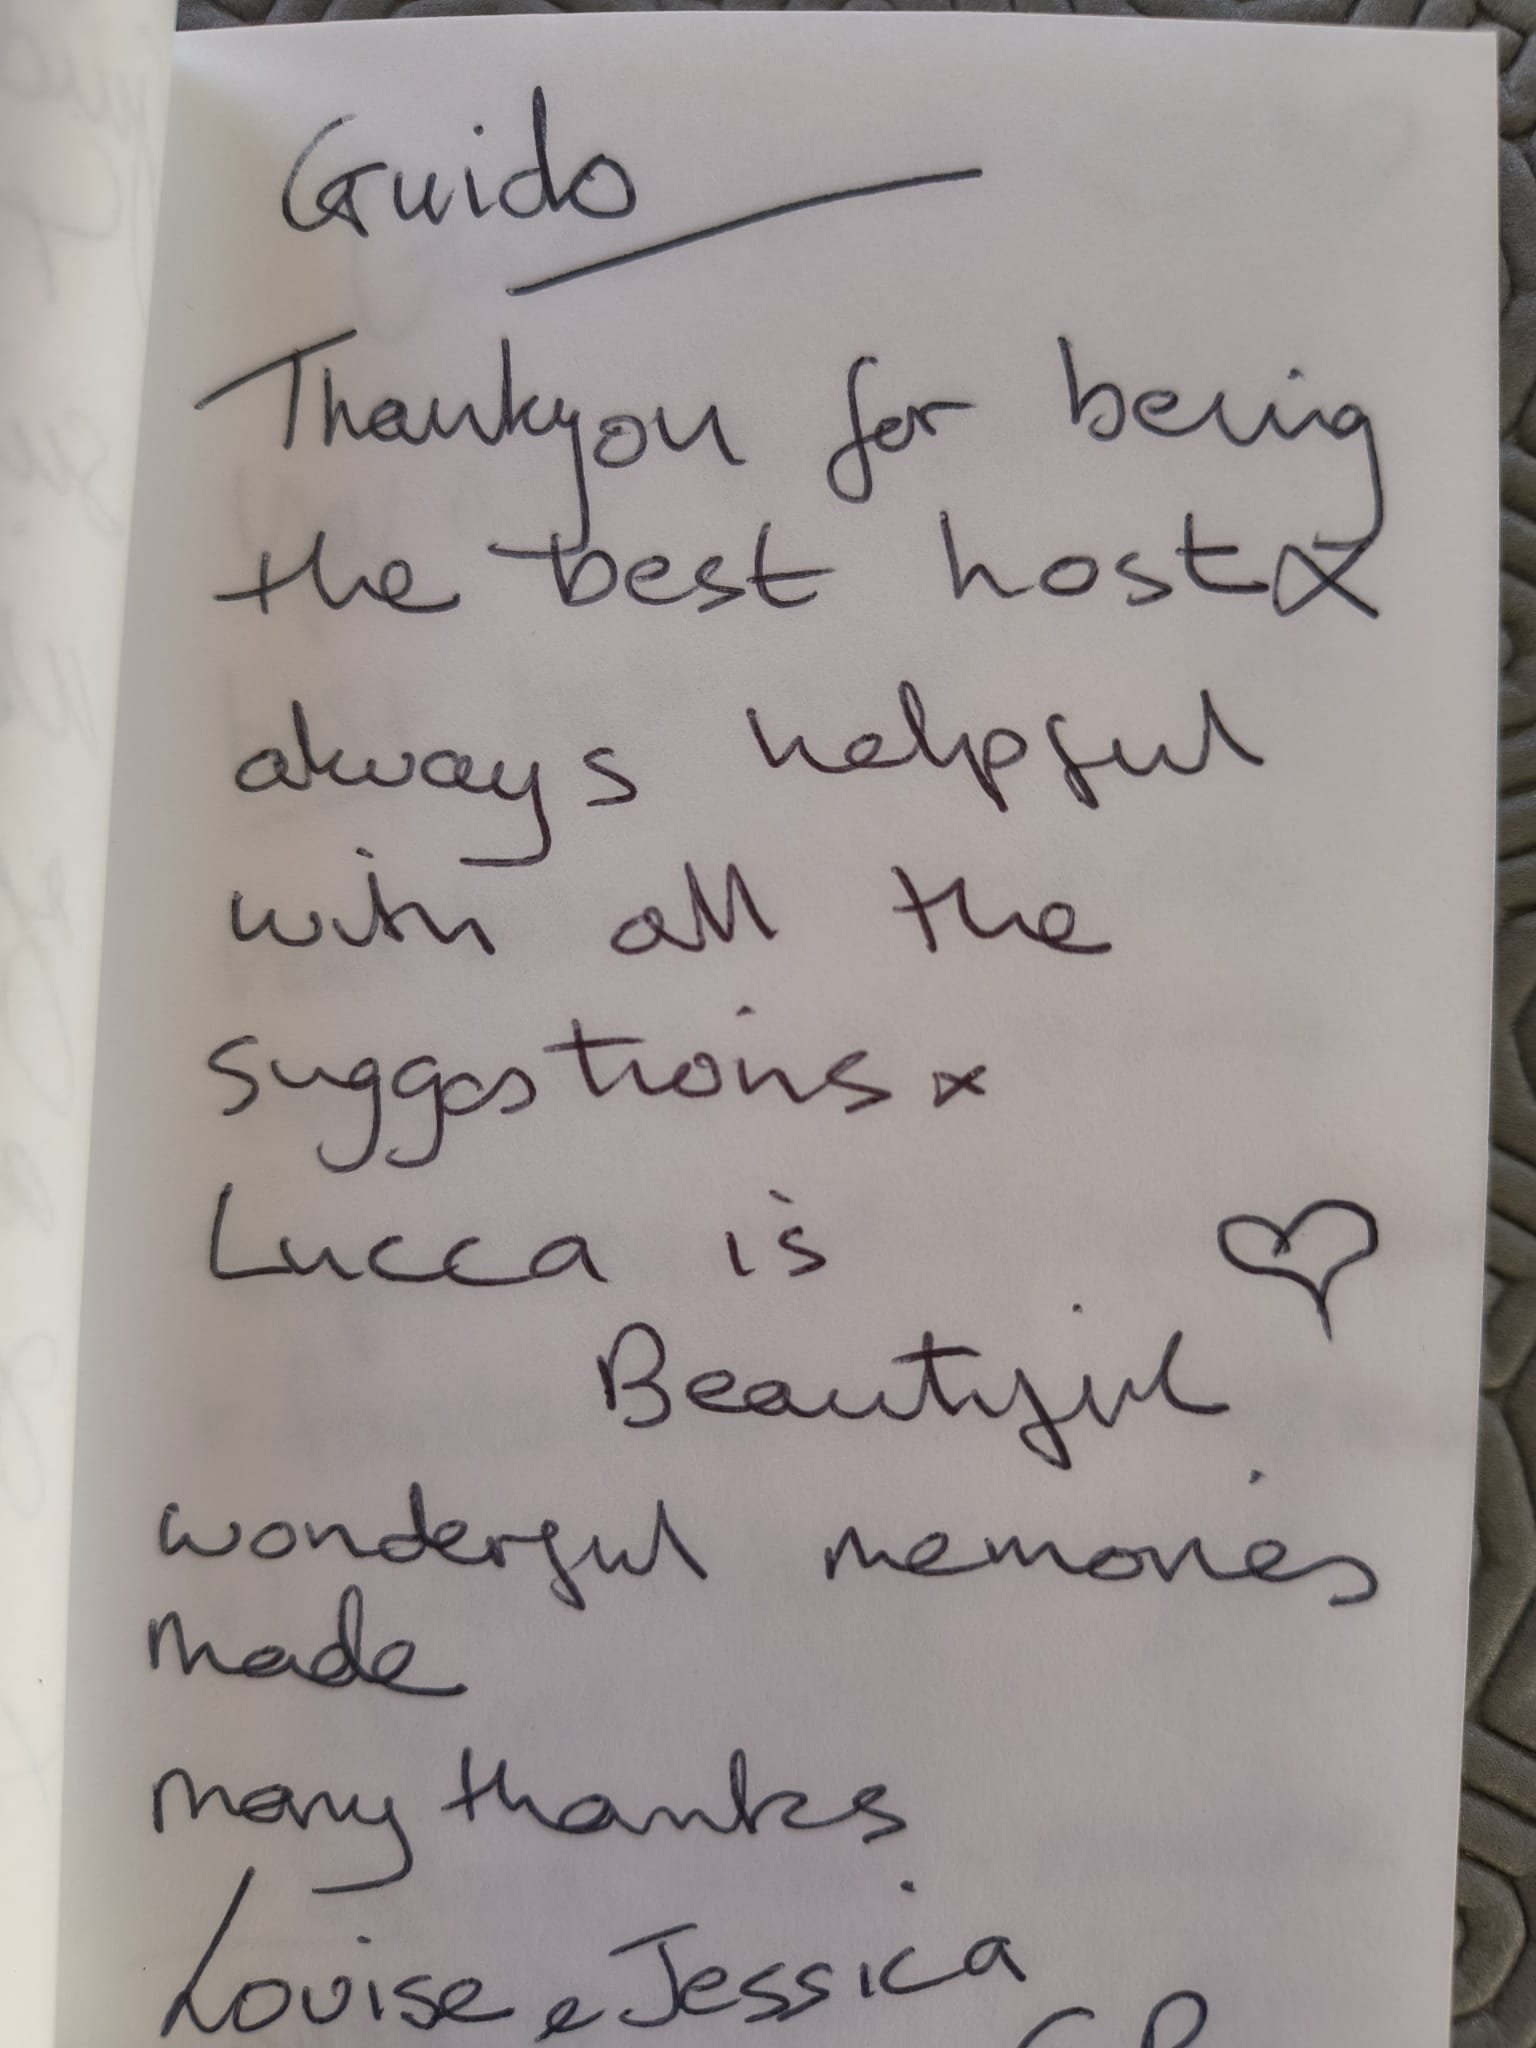 Guido
Thankyou for being
the best host x
always helpful
with all the
suggestions x
Lucca is
Beautiful
wonderful memories
made
many thanks
Louise e Jessica